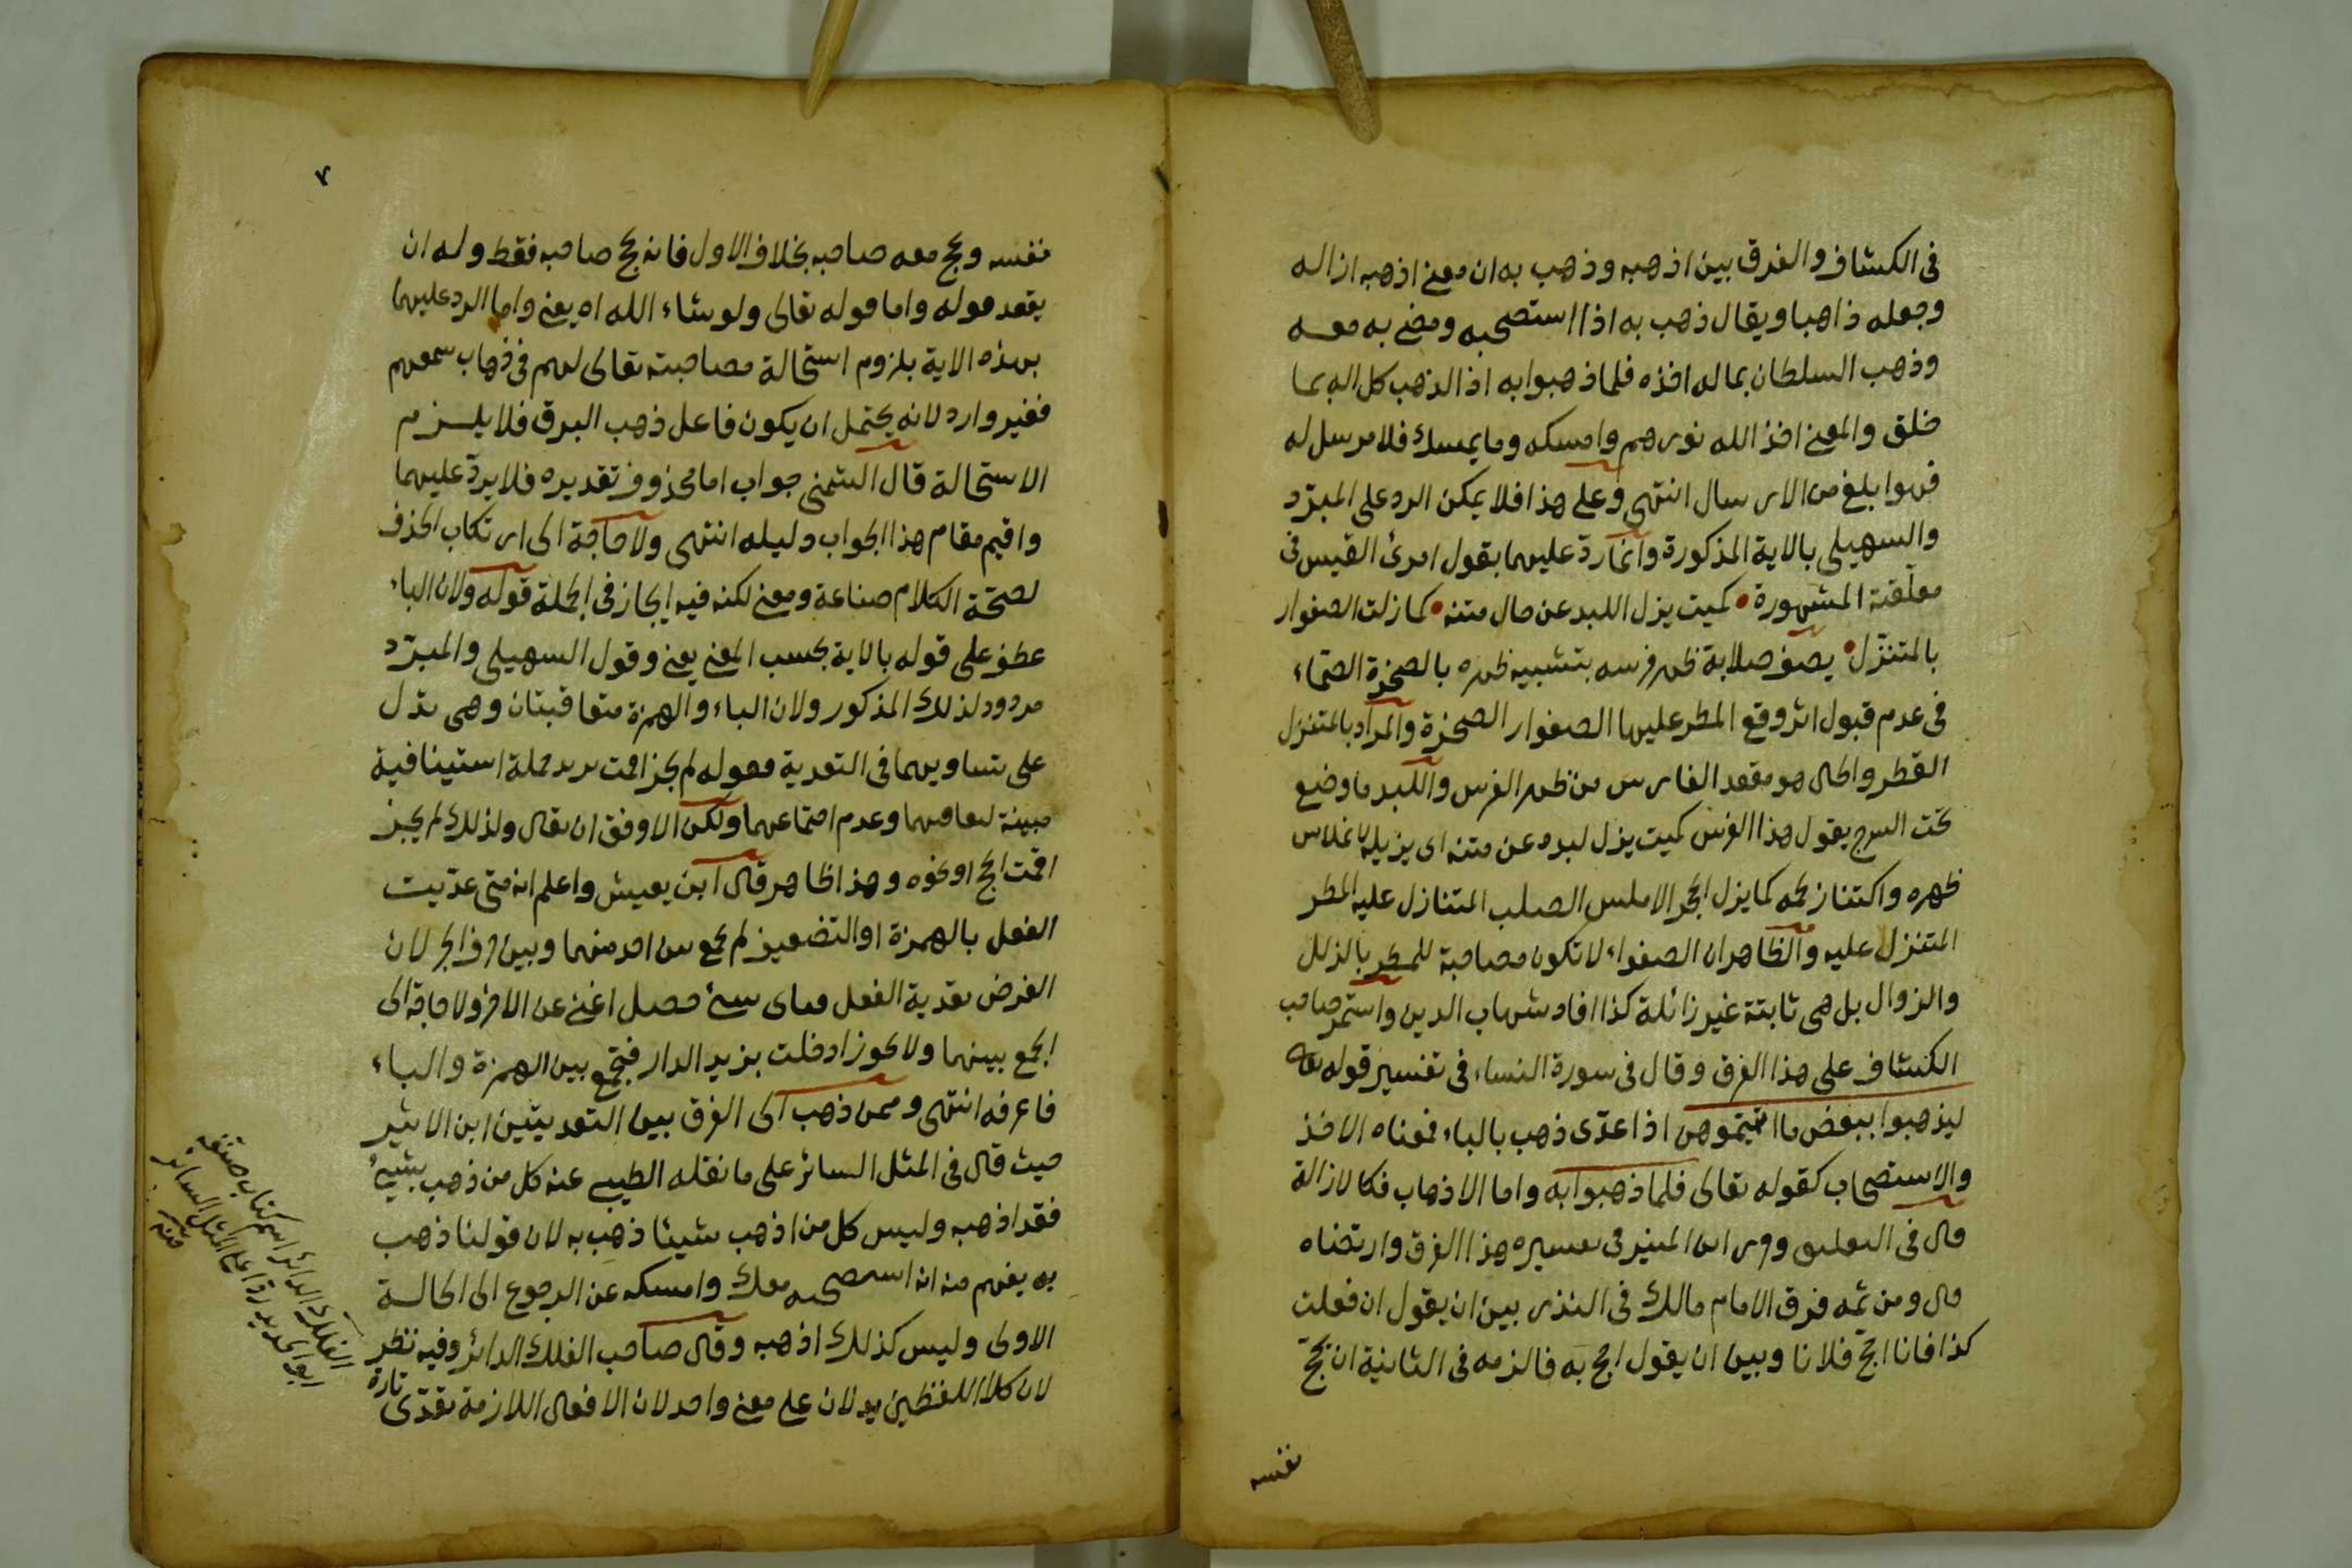 فى الكشاف والفرق بين اذهبه وذهب به ان معنى اذهبه ازاله
وجعله ذاهبا ويقال ذهب به اذا استصحبه ومضى به معه
وذهب السلطان بماله اخذه فلما ذهبوا به اذا لذهب كل اله بما
خلق والمعنى اخذ الله نورهم وامسكه وما يمسك فلا مرسل له
فهوابلغ من الارسال انتهى وعلى هذا فلا يمكن الرد على المبرّد
والسهيلى بالاية المذكورة وانما ردّ عليهما بقول امرئ القيس فى
معلّقته المشهورة • كميت يزل اللبد عن حال متنه • كما زلت الصفواء
بالمتنزّل • يصف صلابة ظهر فرسه بتشبيه ظهره بالصخرة الصمّاء
فى عدم قبول اثر وقع المطر عليها الصفواء الصخرة والمراد بالمتنزل
القطر والحال هو مقعد الفارس من ظهر الفرس واللبد ما وضع
تحت السرج يقول هذا الفرس كميت يزل لبده عن متنه اى يزيله لانملاس
ظهره واكتناز لحمه كما يزل الحجر الاملس الصلب المتنازل عليه المطر
المتنزل عليه والظاهر ان الصفواء لا تكون مصاحبة للمطر بالزلل
والزوال بل هى ثابتة غير زائلة كذا افاد شهاب الدين واستمر صاحب
الكشاف على هذا الفرق وقال فى سورة النساء فى تفسير قوله تعا
ليذهبوا ببعض ما اتيتموهن اذا عدّى ذهب بالباء فمعناه الاخذ
والاستصحاب كقوله تعالى فلما ذهبوا به واما الاذهاب فكالازالة
قال فى التعليق وقرر ابن المنير فى تفسيره هذا الفرق وارتضاه
قال ومن ثمه فرق الامام مالك فى النذر بين ان يقول ان فعلت
كذا فانا احجّ فلانا وبين ان يقول احج به فالزمه فى الثانية ان يحجّ
نفسه
٧
نفسه ويحج معه صاحبه بخلاف الاول فانه يحج صاحبه فقط وله ان
يقعد قوله واما قوله تعالى ولو شاء الله اه يعنى واما الرد عليهما
بهذه الاية بلزوم استحالة مصاحبته تعالى لهم فى ذهاب سمعهم
فغير وارد لانه يحتمل ان يكون فاعل ذهب البرق فلا يلزم
الاستحالة قال الشمنى جواب اما محذوف تقديره فلا يردّ عليهما
واقيم مقام هذا الجواب دليله انتهى ولا حاجة الى ارتكاب الحذف
لصحّة الكلام صناعة ومعنى لكنه فيه ايجاز فى الجملة قوله ولان الباء
عطف على قوله بالاية بحسب المعنى يعنى وقول السهيلى والمبرّد
مردود لذلك المذكور ولان الباء والهمزة متعاقبتان وهى تدل
على تساويهما فى التعدية فقوله لم يجز اقمت بزيد جملة استينافية
مبينة لتعاقبهما وعدم اجتماعهما ولكن الاوفق ان يقال ولذلك لم يجز
اقمت الخ او نحوه وهذا ظاهر قال ابن يعيش واعلم انه متى عدّيت
الفعل بالهمزة او التضعيف لم يجمع بين احد منهما وبين حرف الجر لان
الغرض تعدية الفعل فباى شئ حصل اغنى عن الاخر ولا حاجة الى
الجمع بينهما ولا يجوز ادخلت بزيد الدار فتجمع بين الهمزة والباء
فاعرفه انتهى وممن ذهب الى الفرق بين التعديتين ابن الاثير
حيث قال فى المثل السائر على ما نقله الطيبى عنه كل من ذهب بشئ
فقد اذهبه وليس كل من اذهب شيئا ذهب به لان قولنا ذهب
به يفهم منه انه استصحبه معك وامسكه عن الرجوع الى الحالة
الاولى وليس كذلك اذهبه وقال صاحب الفلك الدائر وفيه نظر
لان كلا اللفظين يدلان على معنى واحد لان الافعال اللازمة تعدّى تارة
الفلك الدائر اسم كتاب صنفه
ابو الحديد ردا على المثل السائر
منه